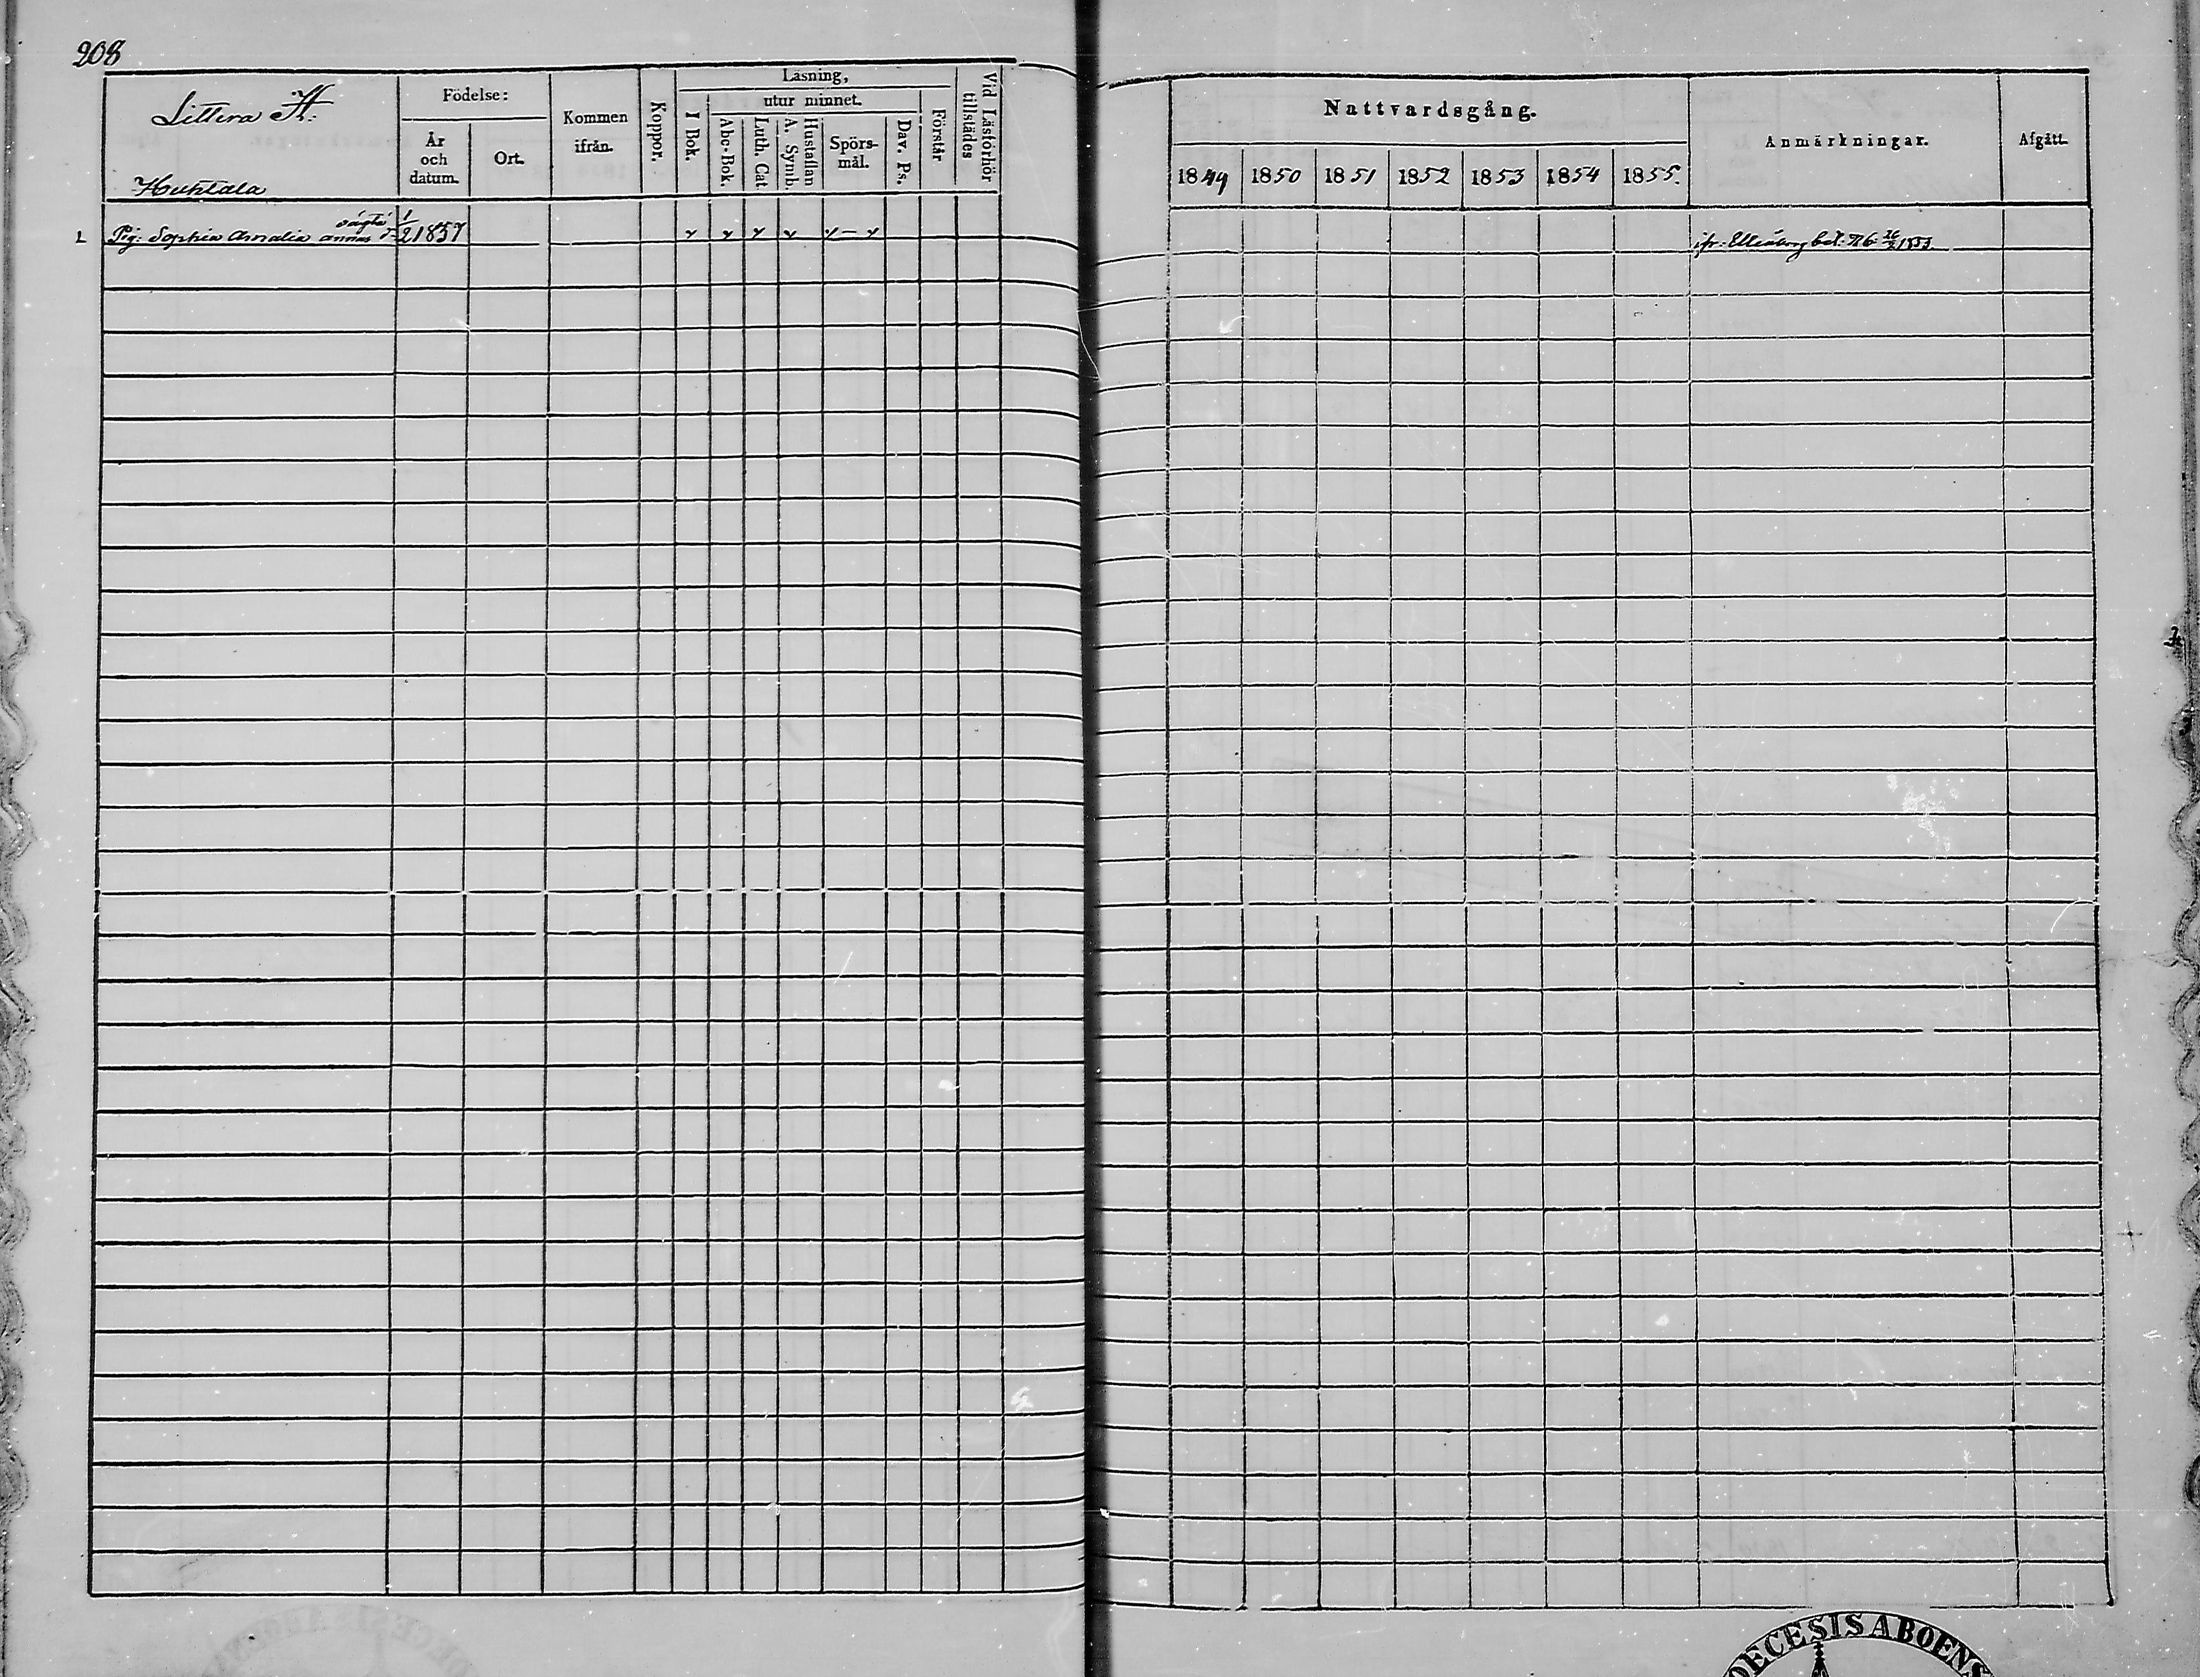 208
Littera H.
Huhtala
Födelse:
År
och
datum.
Ort.
Kommen
ifrån.
Koppor.
Läsning,
I Bok.
utur minnet.
Abc-Bok.
Luth. Cat.
Hustaflan
A. Symb.
Spörs-
mål.
Dav. Ps.
Förstår
Vid Läsförhör
tillstädes
Nattvardsgång.
1849 1850 1851 1852 1853 1854 1855.
Anmärkningar.
Afgått.
1 Pig: Sophia Amalia 1/2 1837
ifr. bet. 1853.
DECESIS ABOENS